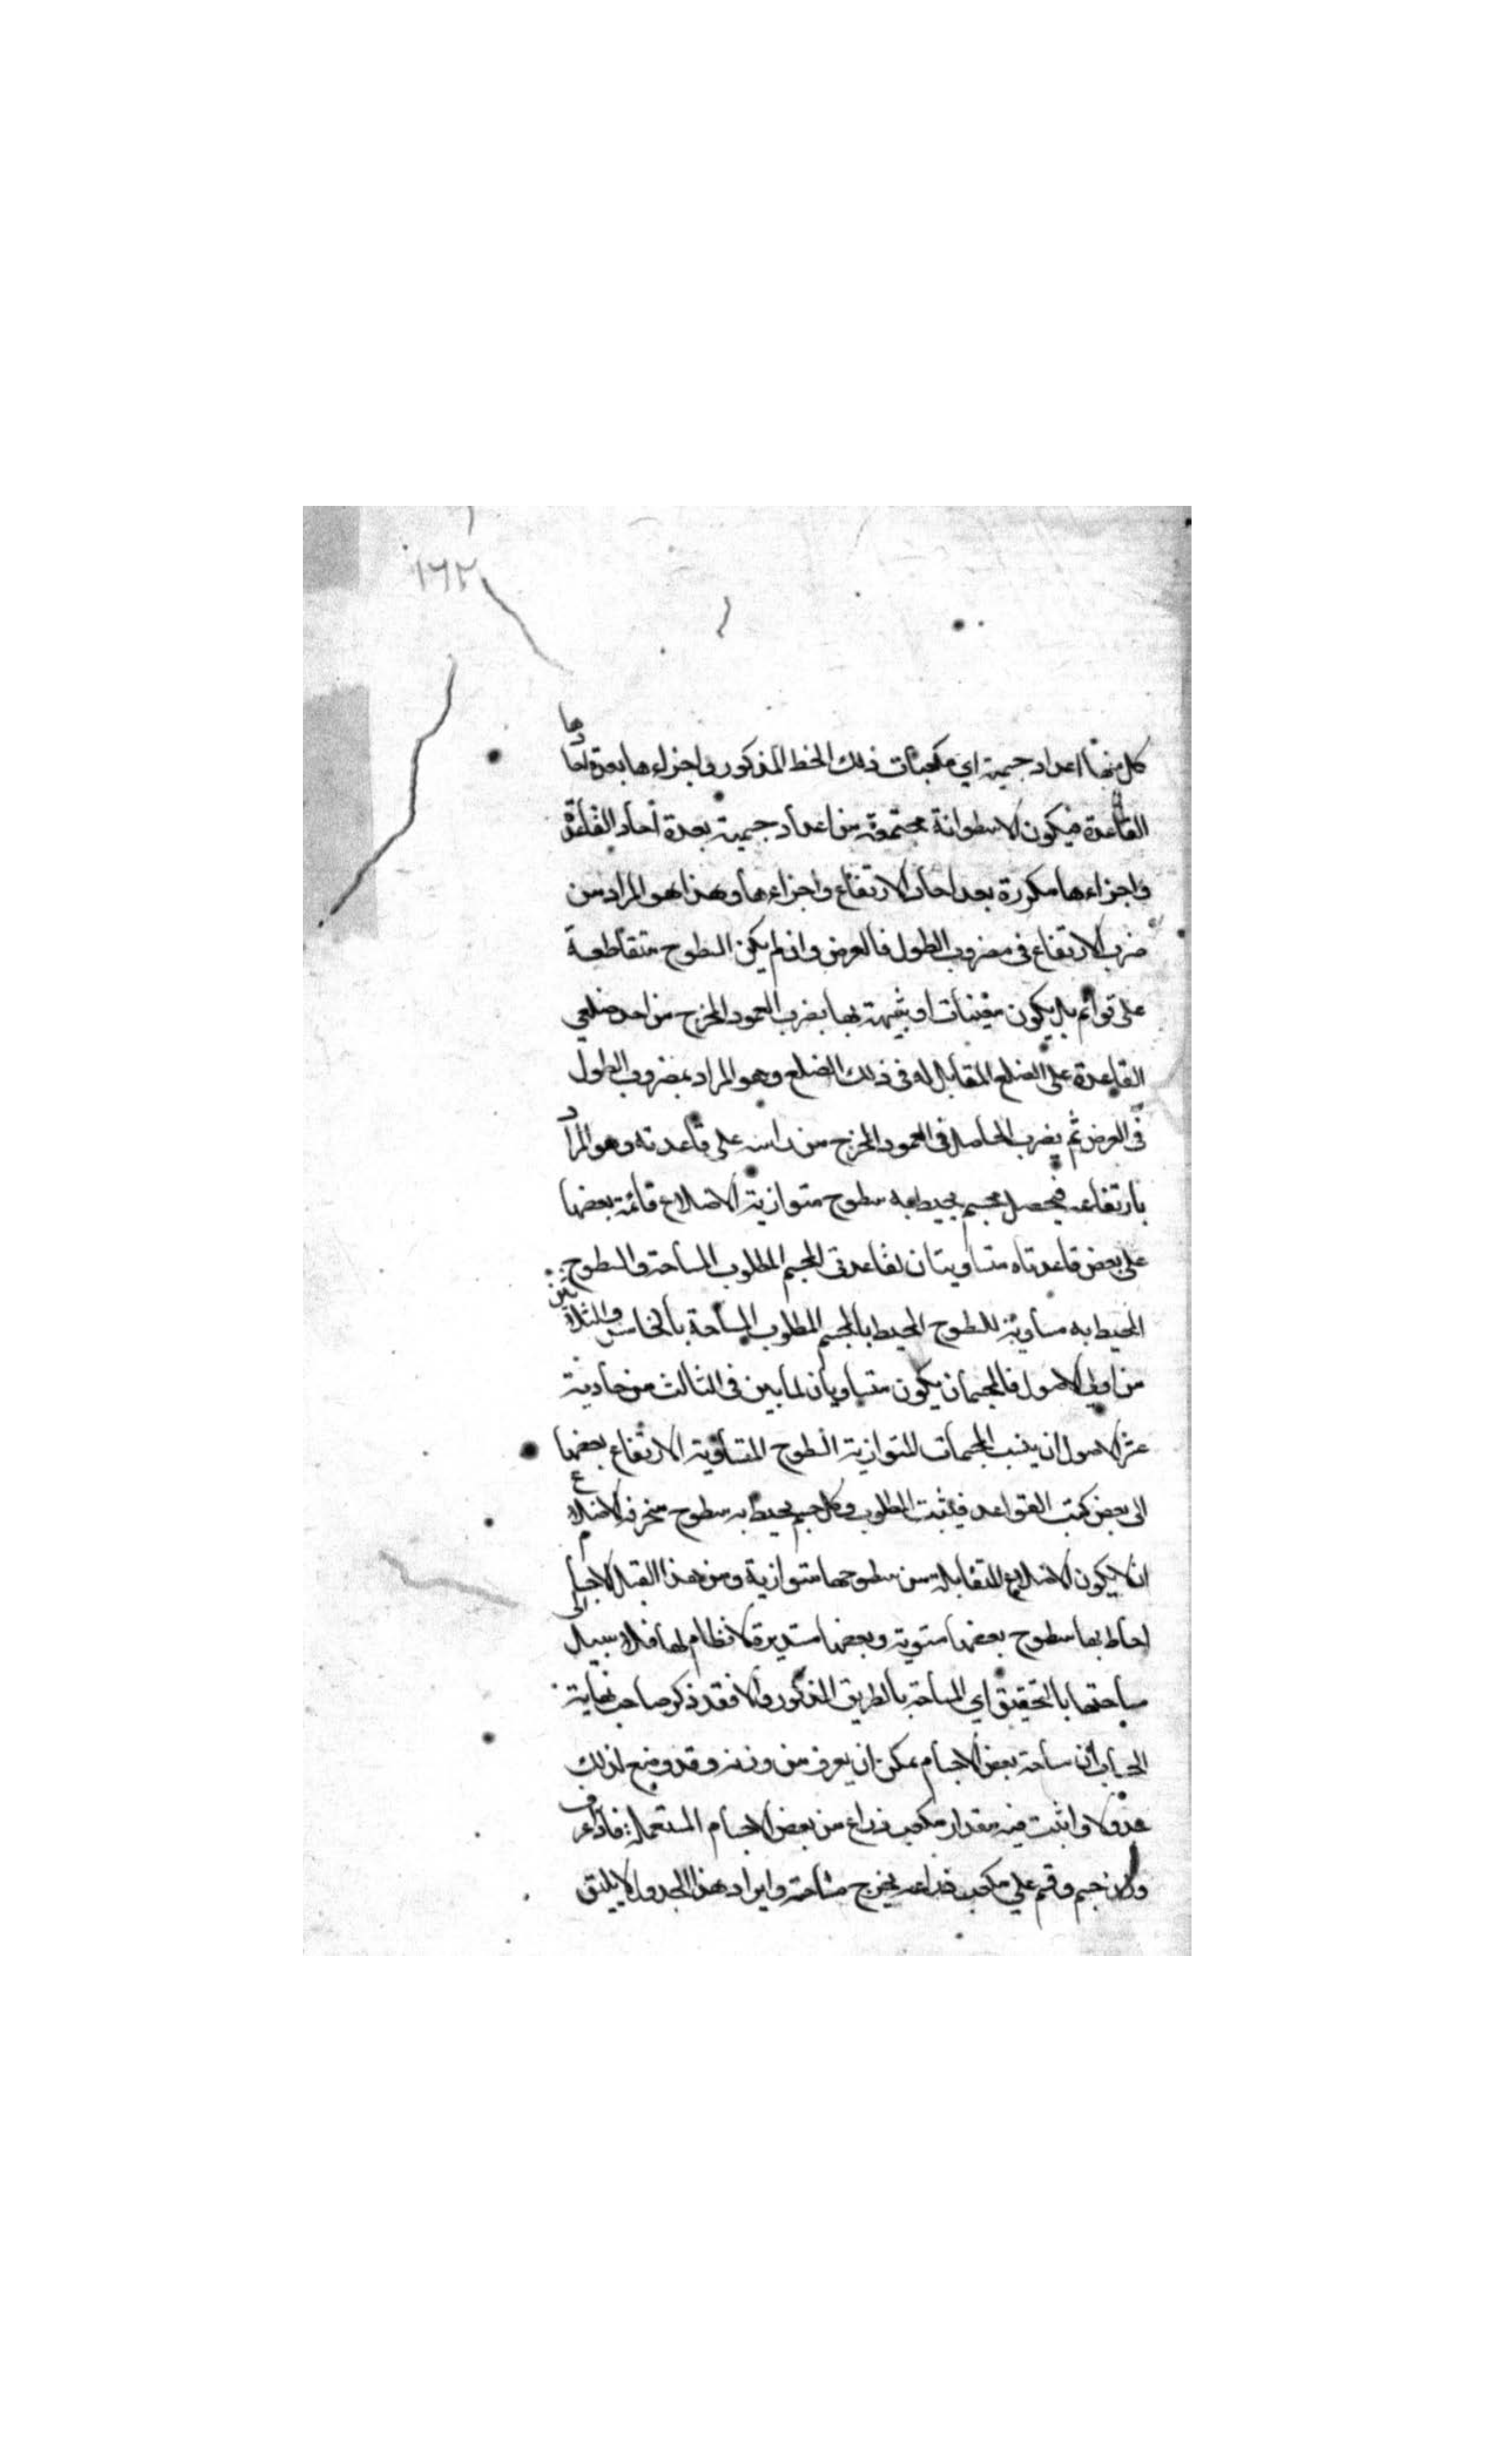 ١٦٢
كل منها اعداد جسمية اي مكعبات ذلك الخط المذكور واجزاءها بعدة احادها
القاعدة فيكون الاسطوانة مجتمعة من اعداد جسمية بعدة احاد القاعدة
واجزاءها مكررة بعد احاد الارتفاع واجزاءها وهذا هو المراد من
ضرب الارتفاع في مضروب الطول فالعرض وان لم يكن السطوح متقاطعة
على قوائم بل يكون معينات او شبيهة بها يضرب العمود المخرج من احد ضلعي
القاعدة على الضلع المقابل له في ذلك الضلع وهو المراد بمضروب الطول
في العرض ثم يضرب الحاصل في العمود المخرج من راسه على قاعدته وهو المراد
بارتفاعه فيحصل مجسم يحيط به سطوح متوازية الاضلاع قائمة بعضها
على بعض قاعدتاه متساويتان لقاعدتي المجسم المطلوب المساحة والسطوح
المحيط به مساوية للسطوح المحيط بالمجسم المطلوب المساحة بالخامس والثلاثين
من اولي الاصول فالمجسمان يكون متساويان لما بين في الثالث من حادية
عشر الاصول ان ينسب المجسمات المتوازية السطوح المتساوية الارتفاع بعضها
الى بعض كنسب القواعد فيثبت المطلوب وكل جسم يحيط به سطوح منحرفة الاضلاع
ان لا يكون الاضلاع المتقابلة من سطوحها متوازية ومن هذا القبيل الاجسام
احاط بها سطوح بعضها مستوية وبعضها مستديرة لا نظام لها فلا سبيل الى
مساحتها بالتحقيق اي المساحة بالطريق المذكور والا فقد ذكر صاحب نهاية
الحساب ان مساحة بعض الاجسام يمكن ان يعرف من وزنه وقد وضع لذلك
جدولا واثبت فيه مقدار مكعب ذراع من بعض الاجسام المستعملة فاذا عرف
وزن جسم وقسم على مكعب ذراعه يخرج مساحته وايراد هذا الجدول لا يليق